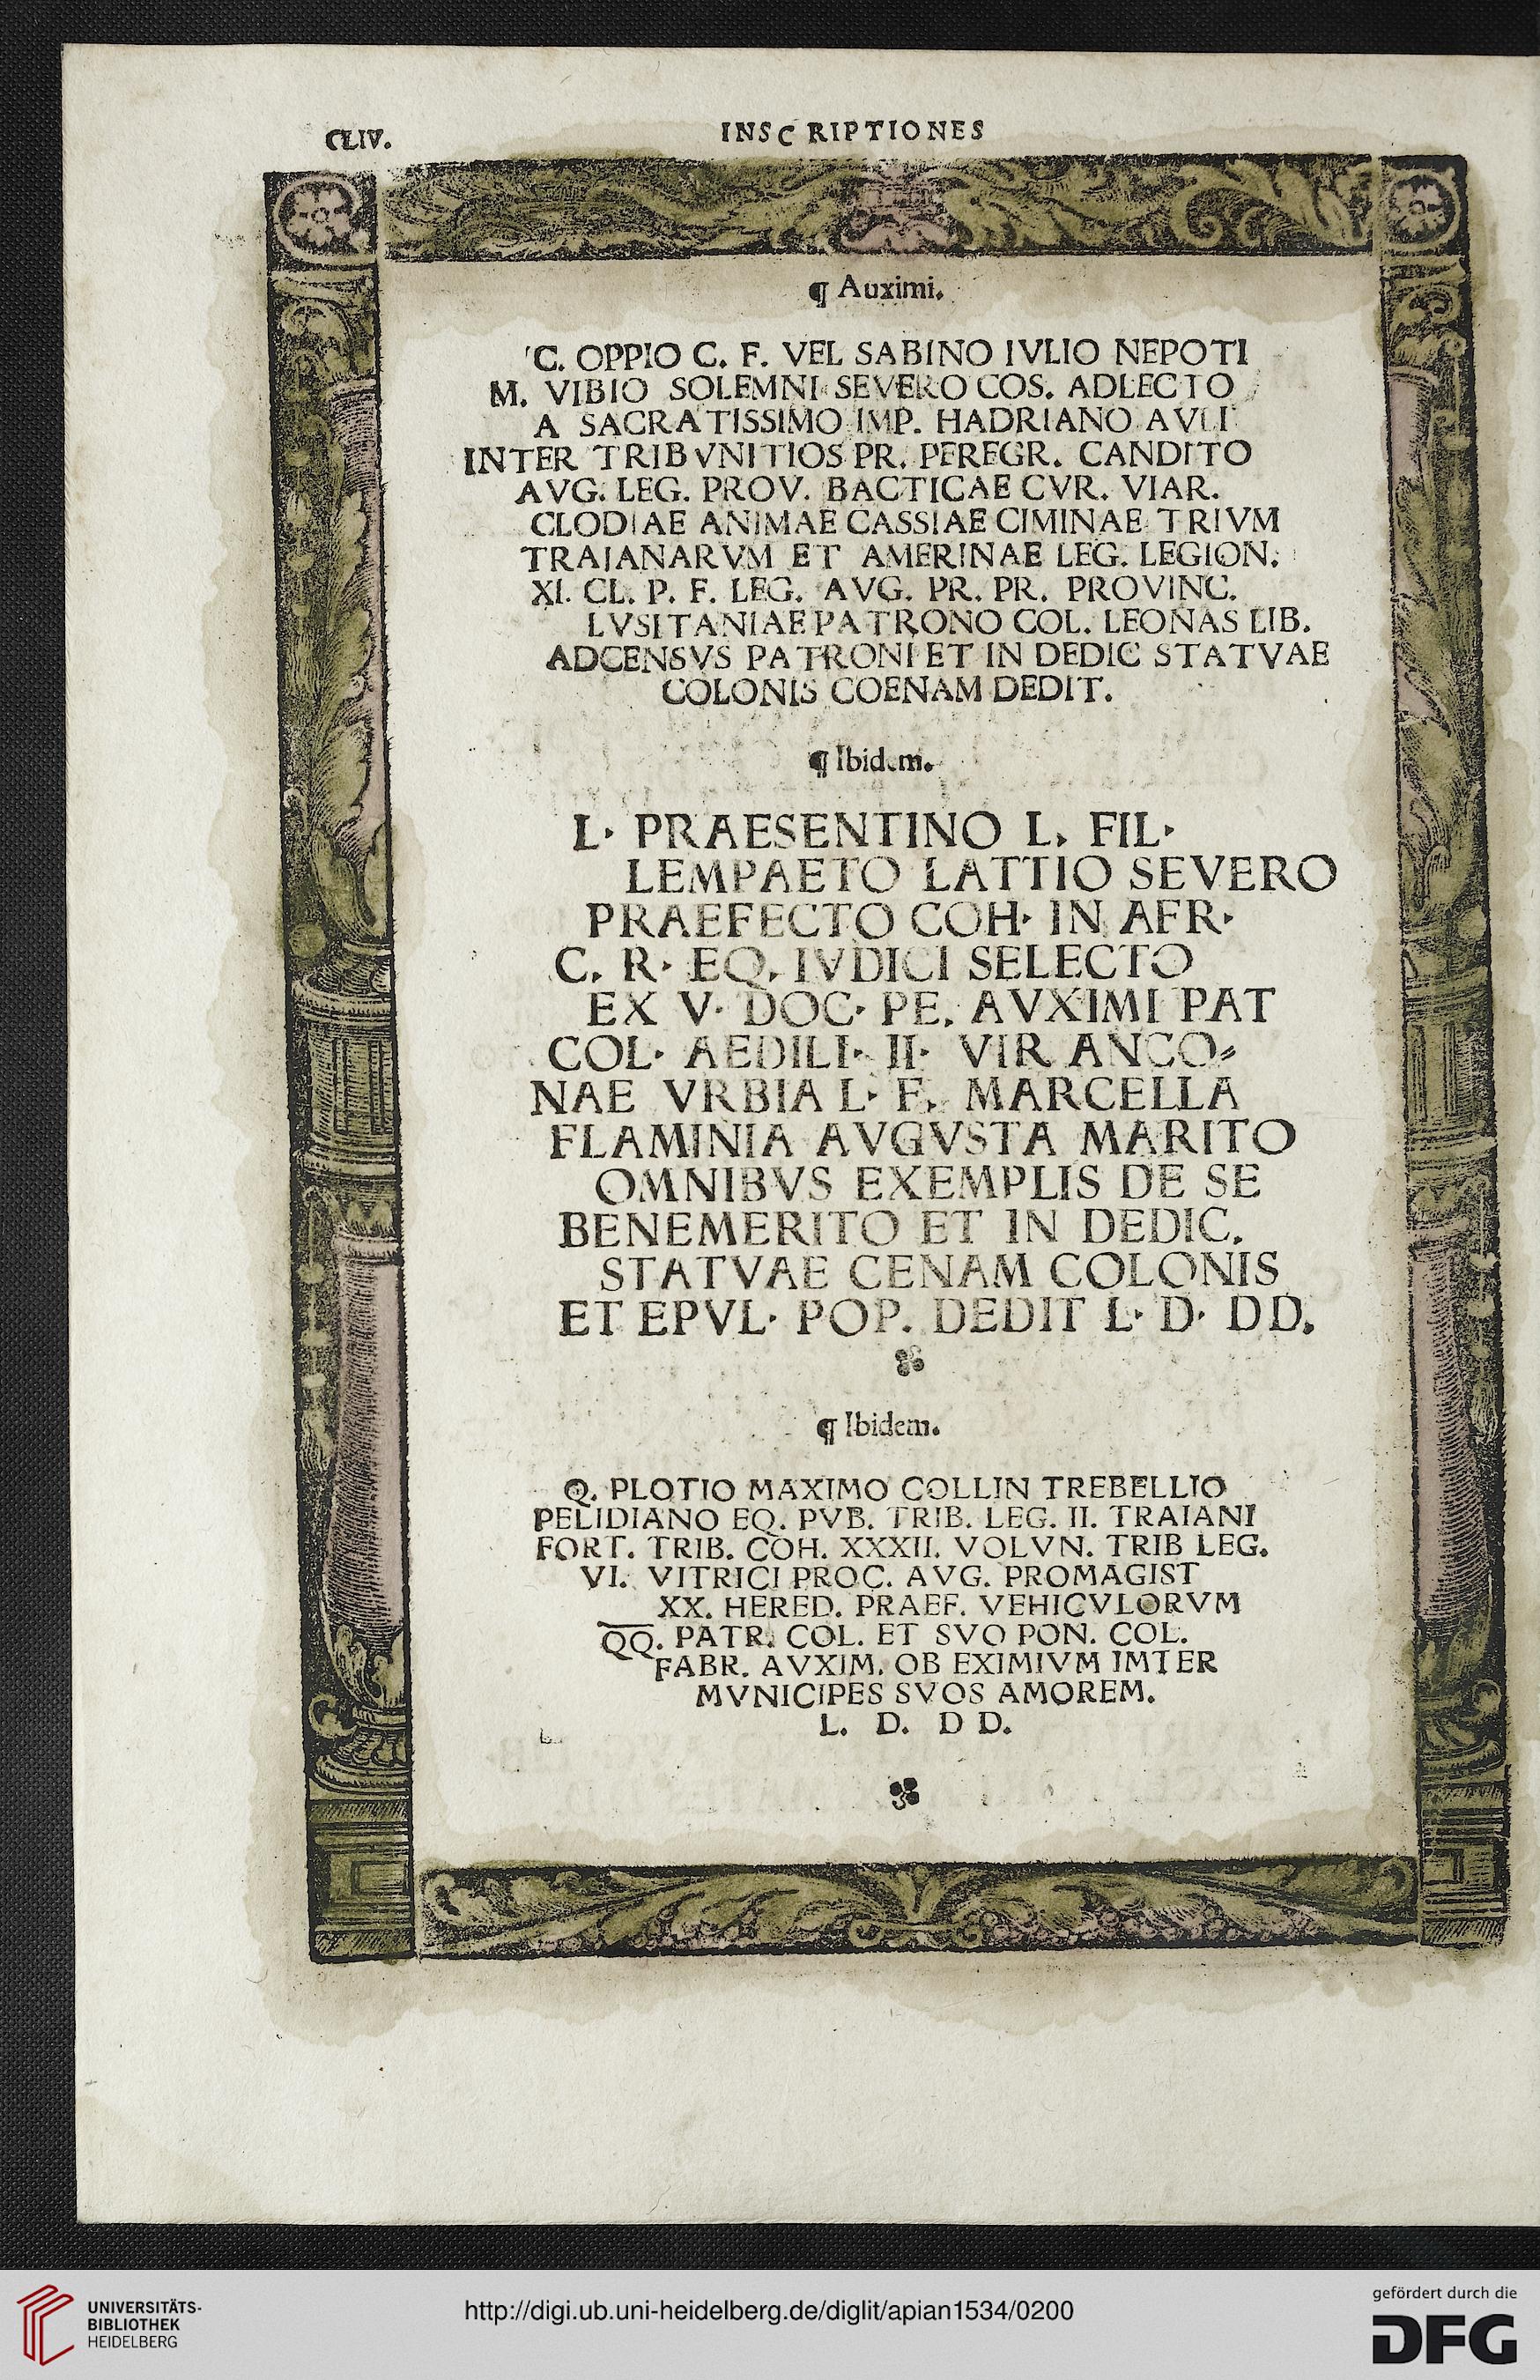 CLIV.
INSCRIPTIONES
¶ Auximi.
C. OPPIO C. F. VEL SABINO IVLIO NEPOTI
M. VIBIO SOLEMNI SEVERO COS. ADLECTO
A SACRATISSIMO IMP. HADRIANO AVLI
INTER TRIBVNITIOS PR. PEREGR. CANDITO
AVG. LEG. PROV. BACTICAE CVR. VIAR.
CLODIAE ANIMAE CASSIAE CIMINAE TRIVM
TRAIANARVM ET AMERINAE LEG. LEGION.
XI. CL. P. F. LEG. AVG. PR. PR. PROVINC.
LVSITANIAE PATRONO COL. LEONAS LIB.
ADCENSVS PATRONI ET IN DEDIC STATVAE
COLONIS COENAM DEDIT.
¶ Ibidem.
L. PRAESENTINO L. FIL.
LEMPAETO LATTIO SEVERO
PRAEFECTO COH. IN AFR.
C. R. EQ. IVDICI SELECTO
EX V. DOC. PE. AVXIMI PAT
COL. AEDILI. II. VIR ANCO=
NAE VRBIA L. F. MARCELLA
FLAMINIA AVGVSTA MARITO
OMNIBVS EXEMPLIS DE SE
BENEMERITO ET IN DEDIC.
STATVAE CENAM COLONIS
ET EPVL. POP. DEDIT L. D. DD.
¶ Ibidem.
Q. PLOTIO MAXIMO COLLIN TREBELLIO
PELIDIANO EQ. PVB. TRIB. LEG. II. TRAIANI
FORT. TRIB. COH. XXXII. VOLVN. TRIB LEG.
VI. VITRICI PROC. AVG. PROMAGIST
XX. HERED. PRAEF. VEHICVLORVM
QQ. PATR. COL. ET SVO PON. COL.
FABR. AVXIM. OB EXIMIVM IMTER
MVNICIPES SVOS AMOREM.
L. D. D D.
UNIVERSITÄTS-
BIBLIOTHEK
HEIDELBERG
http://digi.ub.uni-heidelberg.de/diglit/apian1534/0200
gefördert durch die
DFG